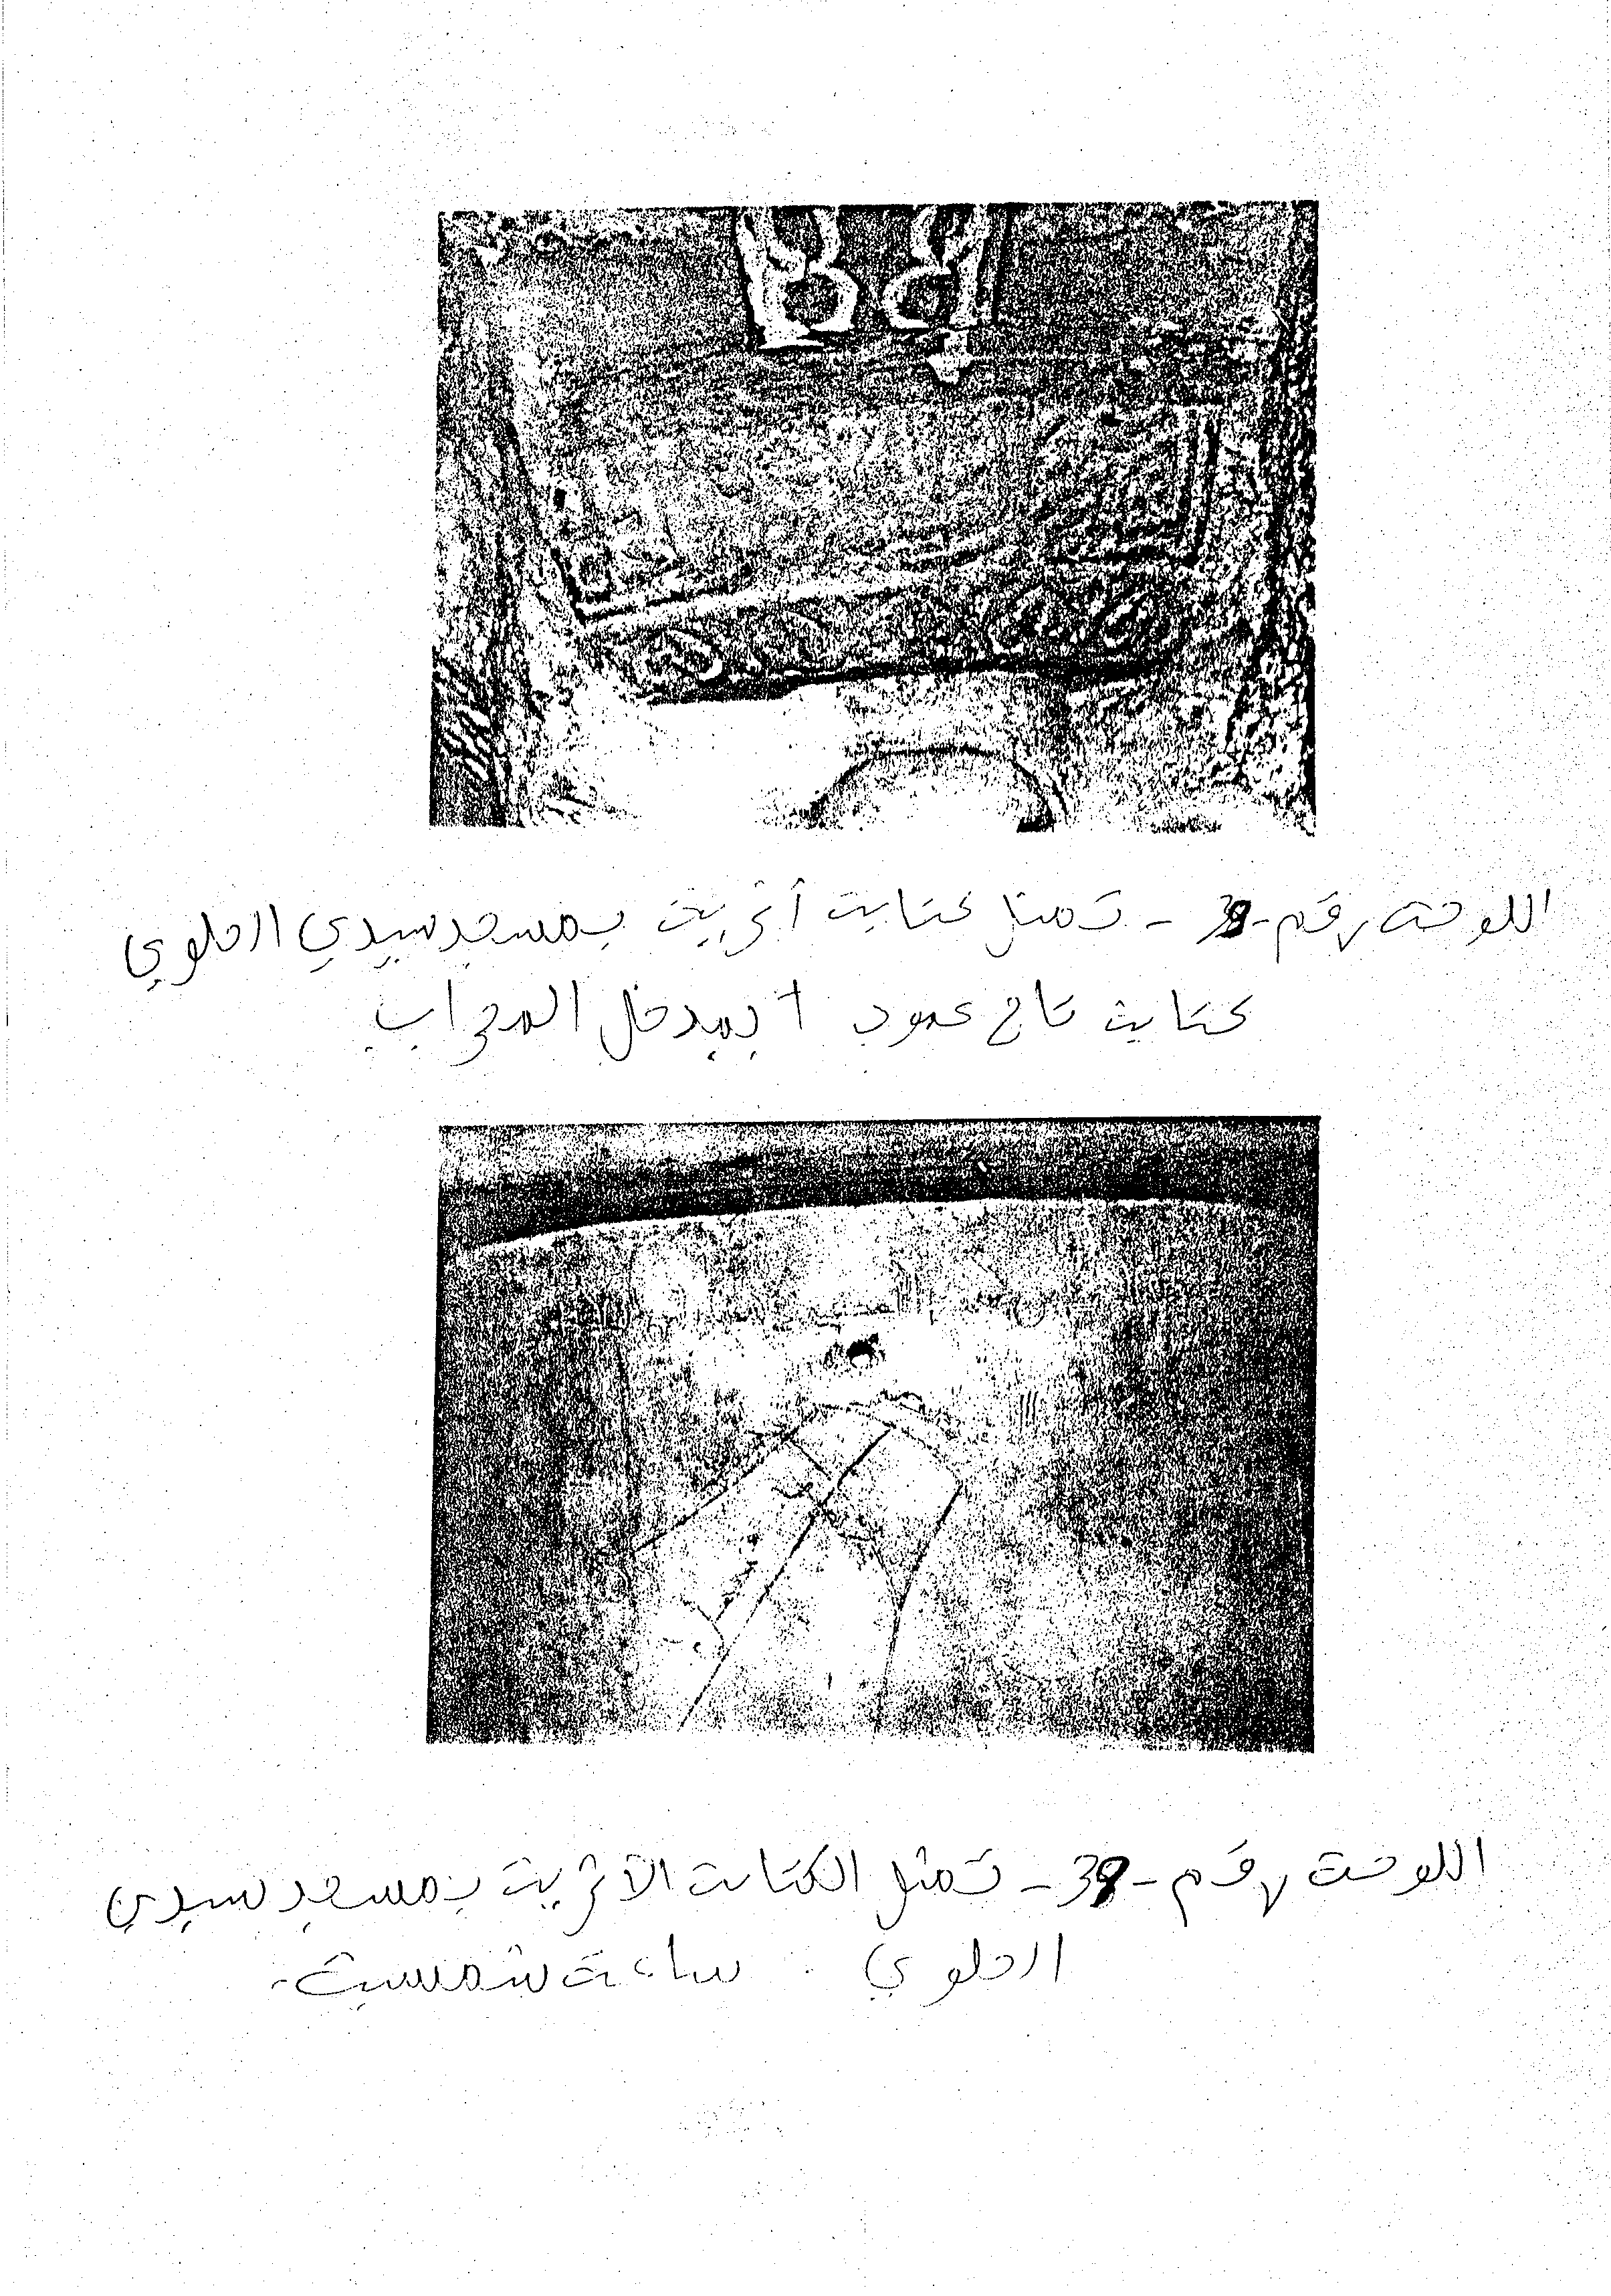 اللوحة رقم -38- تمثل كتابة أثرية بمسجد سيدي الحلوي
كتابة تاج عمود أ بمدخل المحراب
اللوحة رقم -39- تمثل الكتابة الأثرية بمسجد سيدي
الحلوي : ساعة شمسية.